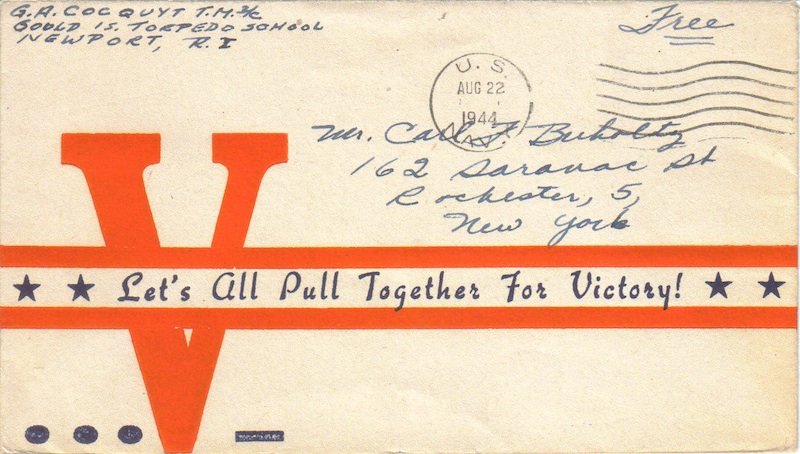 G.A. COCQUYT T.M. 3/c
GOULD IS. TORPEDO SCHOOL
NEWPORT, R.I
Free
U. S.
AUG 22
1944
NAVY
Mr. Carl F Buholtz
162 Saranac St
Rochester, 5,
New York
Let's All Pull Together For Victory!
V